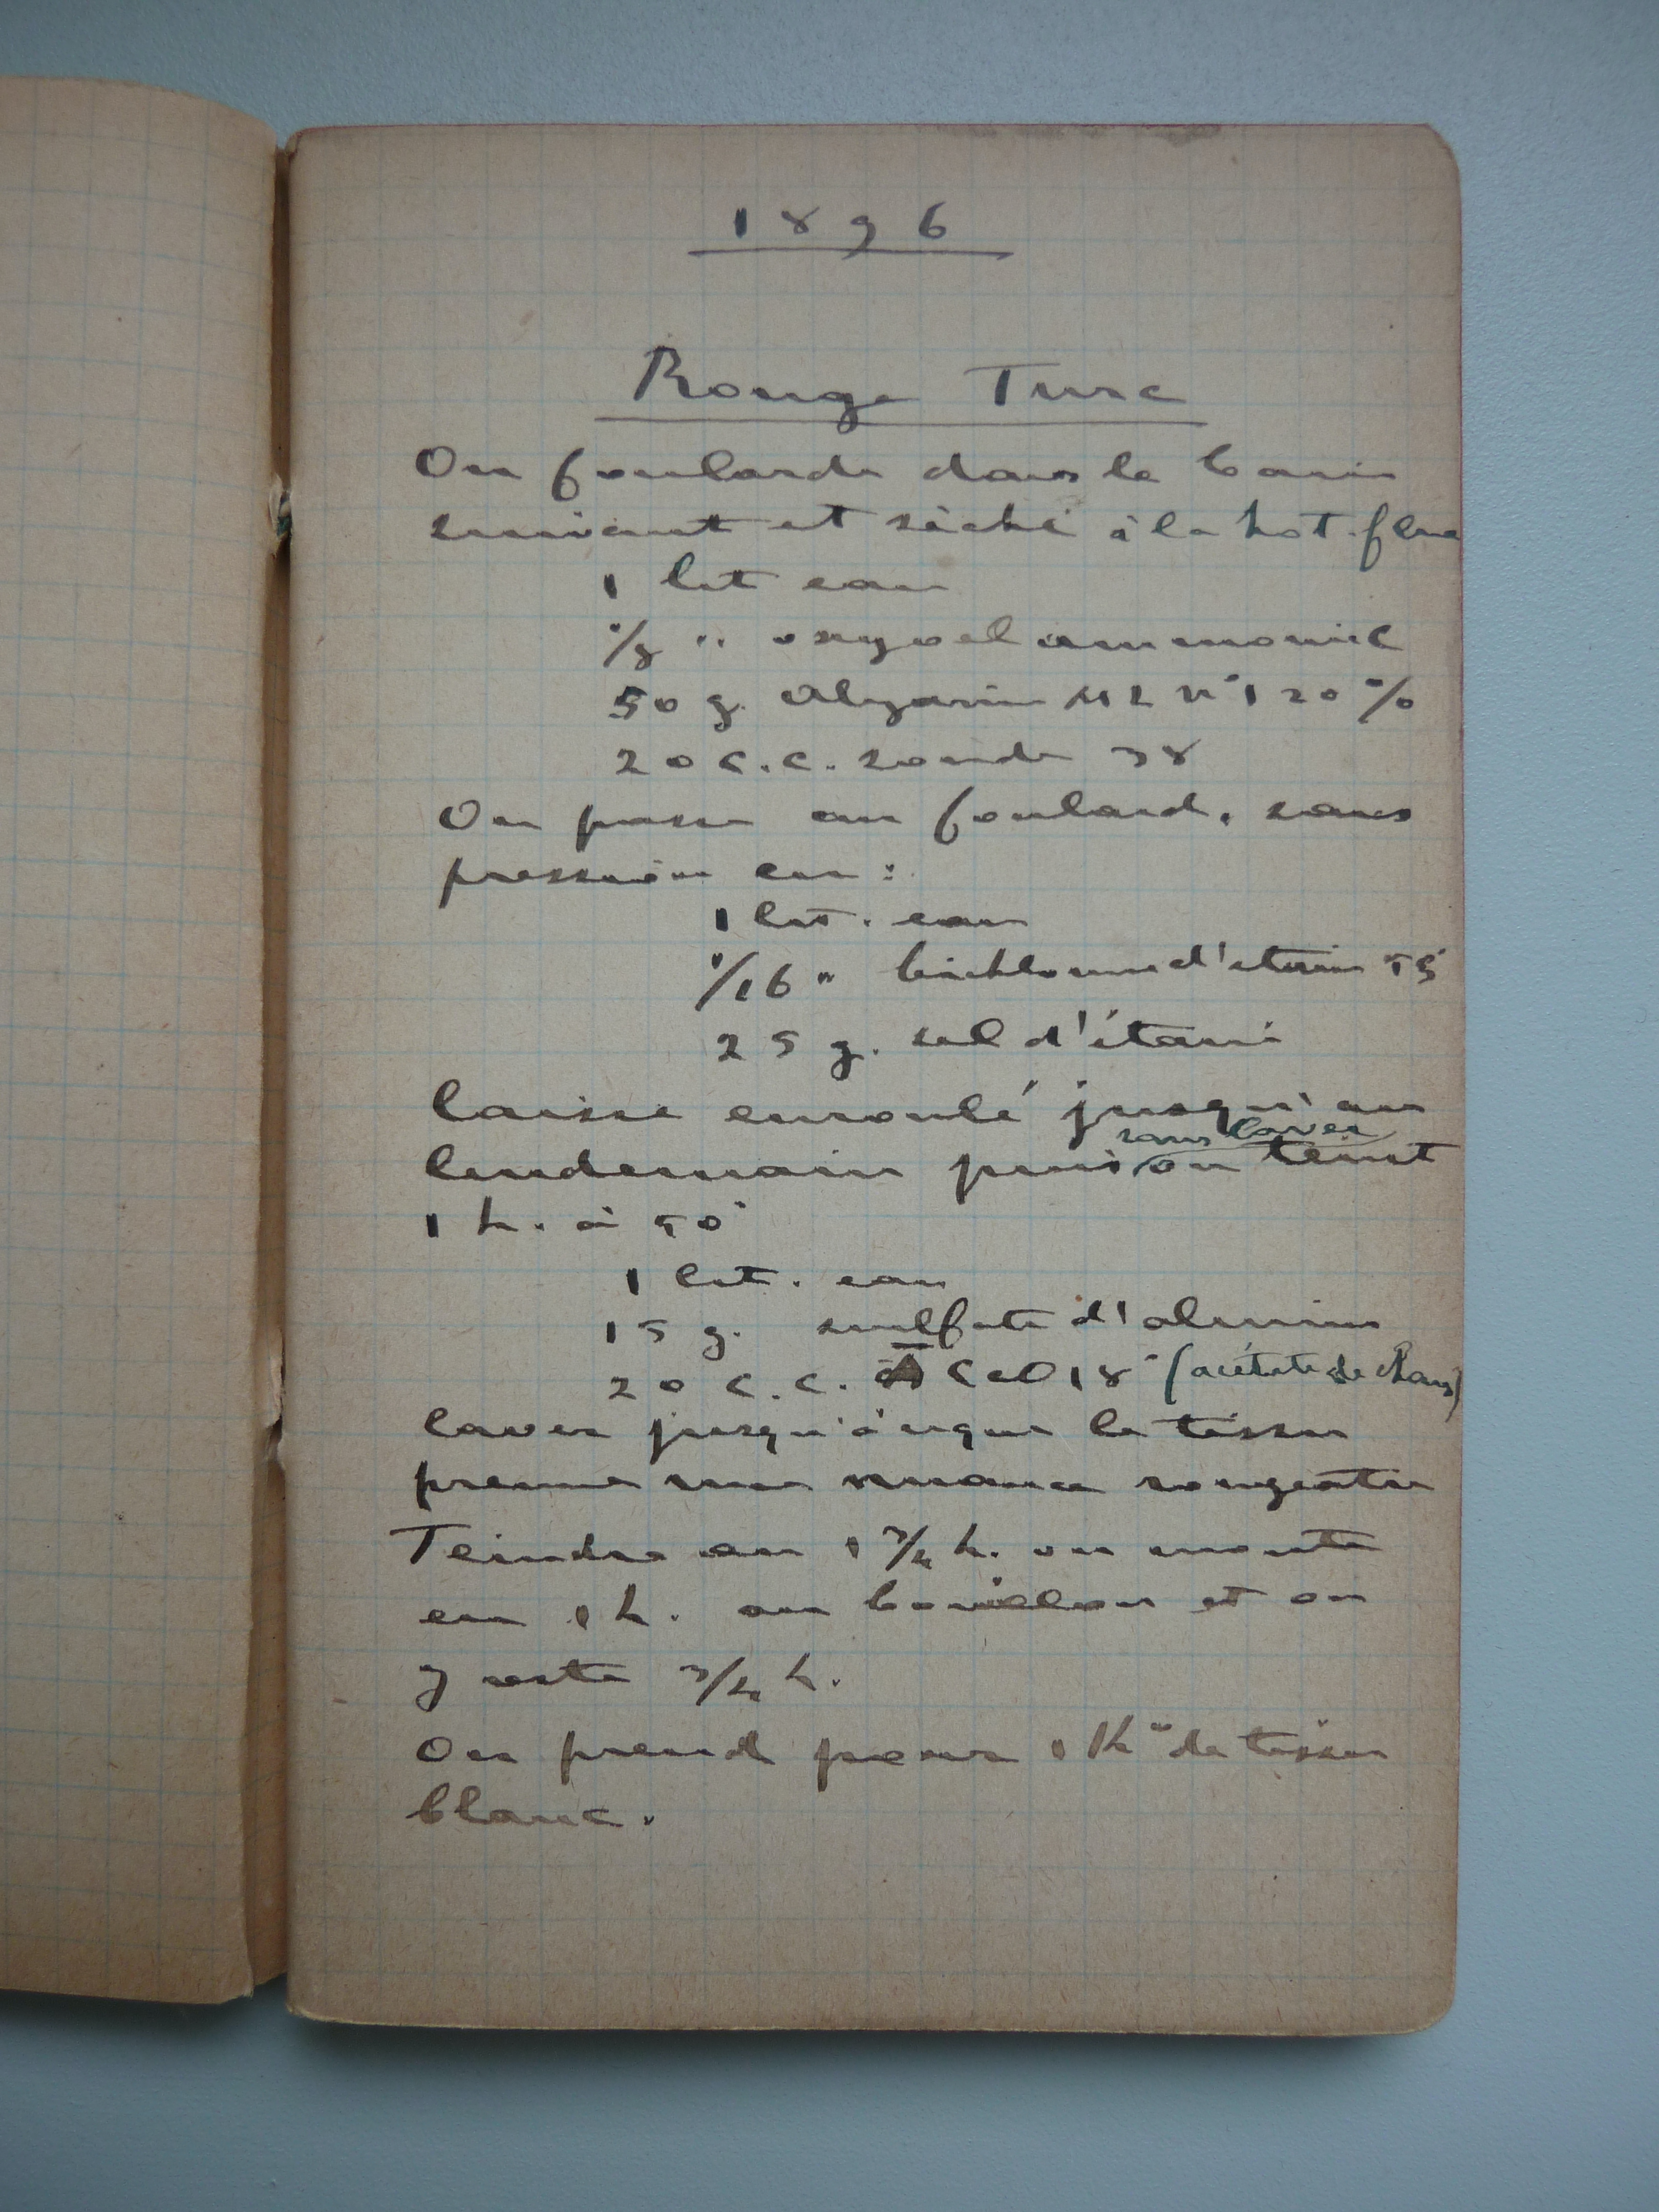 1896
Rouge Turc
On foularde dans le bain
suivant et séché à la hot-flue
1 lit eau
1/8 " oxyoel ammoniac
50 g. Alyzarin n° 1 20 %
20 c.c. soude 38
On passe au foulard, sans
pression en :
1 lit. eau
1/16 " bichlorure d'étain 55°
25 g. sel d'étain
laisse enroulé jusqu'au
sans laver
lendemain puis on teint
1 h. à 50°
1 lit. eau
15 g. sulfate d'alumine
20 c.c. 18° (acétate de chaux)
laver jusqu'à ce que le tissu
prenne une nuance rougeatre
Teindre en 1 3/4 h. on monte
en 1 h. au bouillon et on
y reste 3/4 h.
On prend pour 1 K° de tissu
blanc.